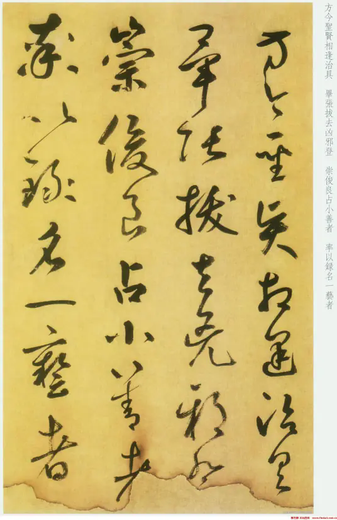 方今聖賢相逢治具
畢張拔去凶邪登
崇俊良占小善者
率以録名一藝者
方今聖賢相逢治具　畢張拔去凶邪登　崇俊良占小善者　率以録名一藝者